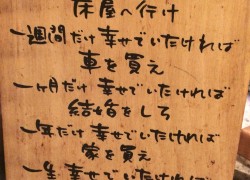 床屋へ行け
一週間だけ幸せでいたければ
車を買え
一ヶ月だけ幸せでいたければ
結婚をしろ
一年だけ幸せでいたければ
家を買え
一生幸せでいたければ